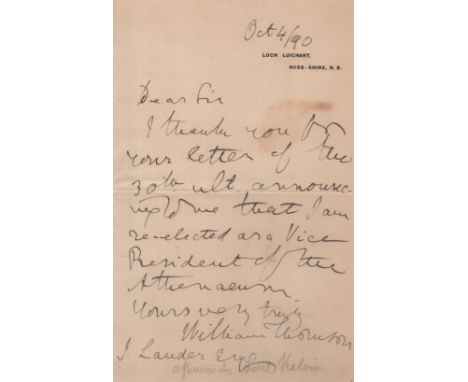 Oct 4/90
LOCH LUICHART,
ROSS-SHIRE, N.B.
Dear Sir
I thank you for
your letter of the
30th ult. announc
ing to me that I am
re-elected as a Vice
President of the
Athenaeum
Yours very truly
William Thomson
J. Lauder Esq
afterwards Lord Kelvin